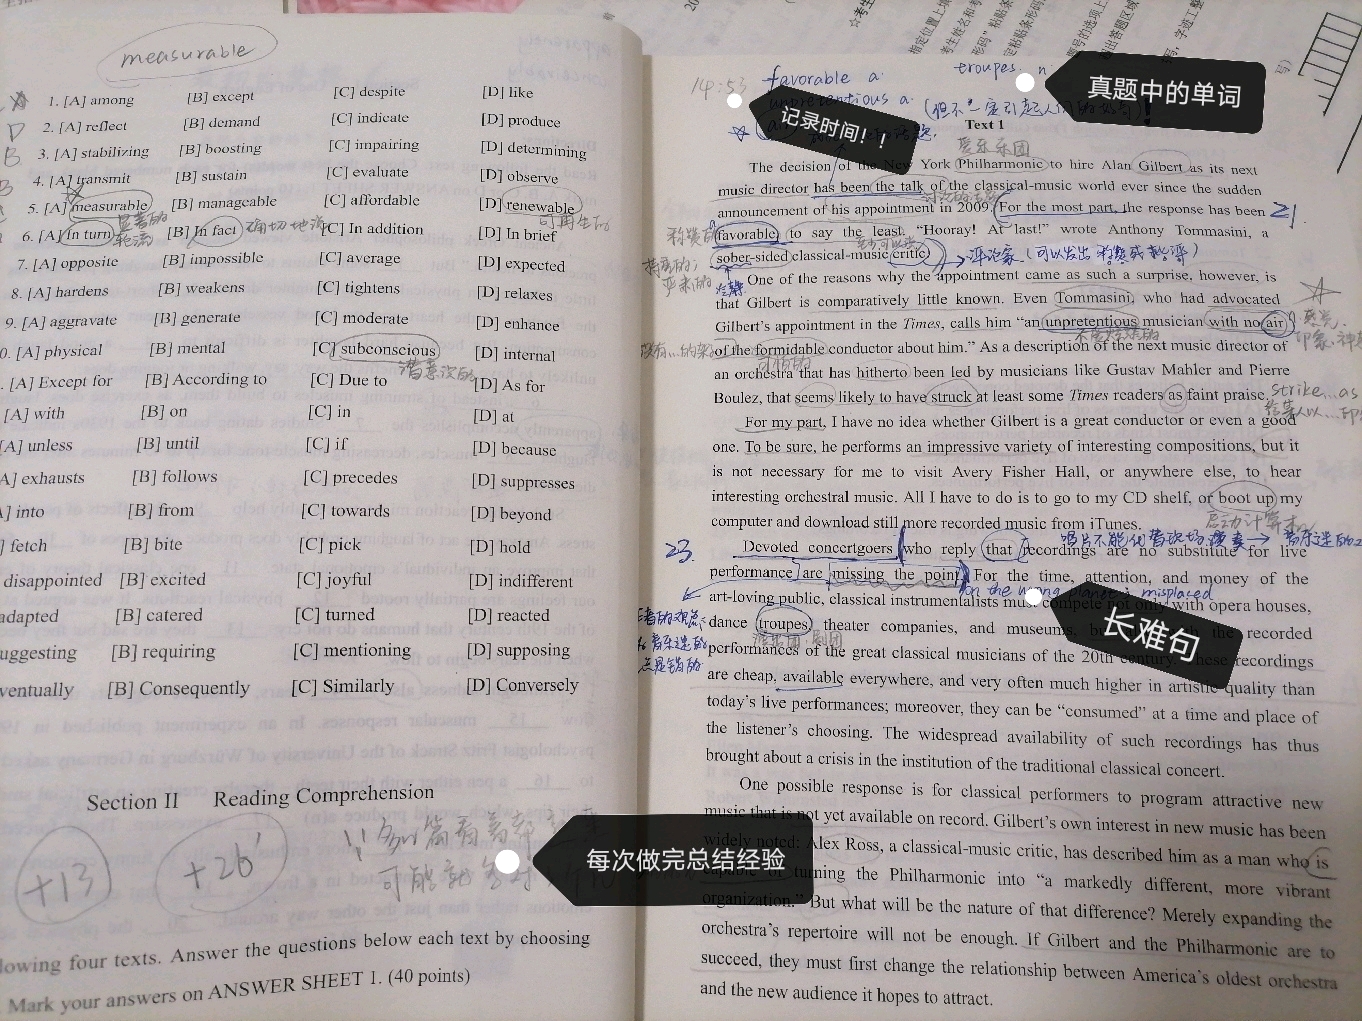 measurable
1. [A] among [B] except [C] despite [D] like
2. [A] reflect [B] demand [C] indicate [D] produce
3. [A] stabilizing [B] boosting [C] impairing [D] determining
4. [A] transmit [B] sustain [C] evaluate [D] observe
5. [A] measurable [B] manageable [C] affordable [D] renewable
显著的 可再生的
6. [A] In turn [B] In fact [C] In addition [D] In brief
轮流 确切地说
7. [A] opposite [B] impossible [C] average [D] expected
8. [A] hardens [B] weakens [C] tightens [D] relaxes
9. [A] aggravate [B] generate [C] moderate [D] enhance
0. [A] physical [B] mental [C] subconscious [D] internal
潜意识的
. [A] Except for [B] According to [C] Due to [D] As for
[A] with [B] on [C] in [D] at
unless [B] until [C] if [D] because
A] exhausts [B] follows [C] precedes [D] suppresses
A] into [B] from [C] towards [D] beyond
] fetch [B] bite [C] pick [D] hold
disappointed [B] excited [C] joyful [D] indifferent
adapted [B] catered [C] turned [D] reacted
uggesting [B] requiring [C] mentioning [D] supposing
ventually [B] Consequently [C] Similarly [D] Conversely
Section II Reading Comprehension
+13 +26
每次做完总结经验
lowing four texts. Answer the questions below each text by choosing
Mark your answers on ANSWER SHEET 1. (40 points)
14:53 favorable a. troupes. n
真题中的单词
记录时间！！
Text 1
爱乐乐团
The decision of the New York Philharmonic to hire Alan Gilbert as its next
music director has been the talk of the classical-music world ever since the sudden
announcement of his appointment in 2009. For the most part, the response has been
21.
favorable, to say the least. “Hooray! At last!” wrote Anthony Tommasini, a
sober-sided classical-music critic.
评论家（可以发出称赞或批评）
One of the reasons why the appointment came as such a surprise, however, is
that Gilbert is comparatively little known. Even Tommasini, who had advocated
冷静
Gilbert’s appointment in the Times, calls him “an unpretentious musician with no air
of the formidable conductor about him.” As a description of the next music director of
an orchestra that has hitherto been led by musicians like Gustav Mahler and Pierre
Boulez, that seems likely to have struck at least some Times readers as faint praise.
strike...as
For my part, I have no idea whether Gilbert is a great conductor or even a good
one. To be sure, he performs an impressive variety of interesting compositions, but it
is not necessary for me to visit Avery Fisher Hall, or anywhere else, to hear
interesting orchestral music. All I have to do is to go to my CD shelf, or boot up my
computer and download still more recorded music from iTunes.
启动计算机
23.
Devoted concertgoers who reply that recordings are no substitute for live
performance are missing the point. For the time, attention, and money of the
on the wrong planet; misplaced
art-loving public, classical instrumentalists must compete not only with opera houses,
长难句
dance troupes, theater companies, and museums, recorded
performances of the great classical musicians of the 20th century. These recordings
are cheap, available everywhere, and very often much higher in artistic quality than
today’s live performances; moreover, they can be “consumed” at a time and place of
the listener’s choosing. The widespread availability of such recordings has thus
brought about a crisis in the institution of the traditional classical concert.
One possible response is for classical performers to program attractive new
music that is not yet available on record. Gilbert’s own interest in new music has been
widely noted: Alex Ross, a classical-music critic, has described him as a man who is
capable of turning the Philharmonic into “a markedly different, more vibrant
organization.” But what will be the nature of that difference? Merely expanding the
orchestra’s repertoire will not be enough. If Gilbert and the Philharmonic are to
succeed, they must first change the relationship between America’s oldest orchestra
and the new audience it hopes to attract.